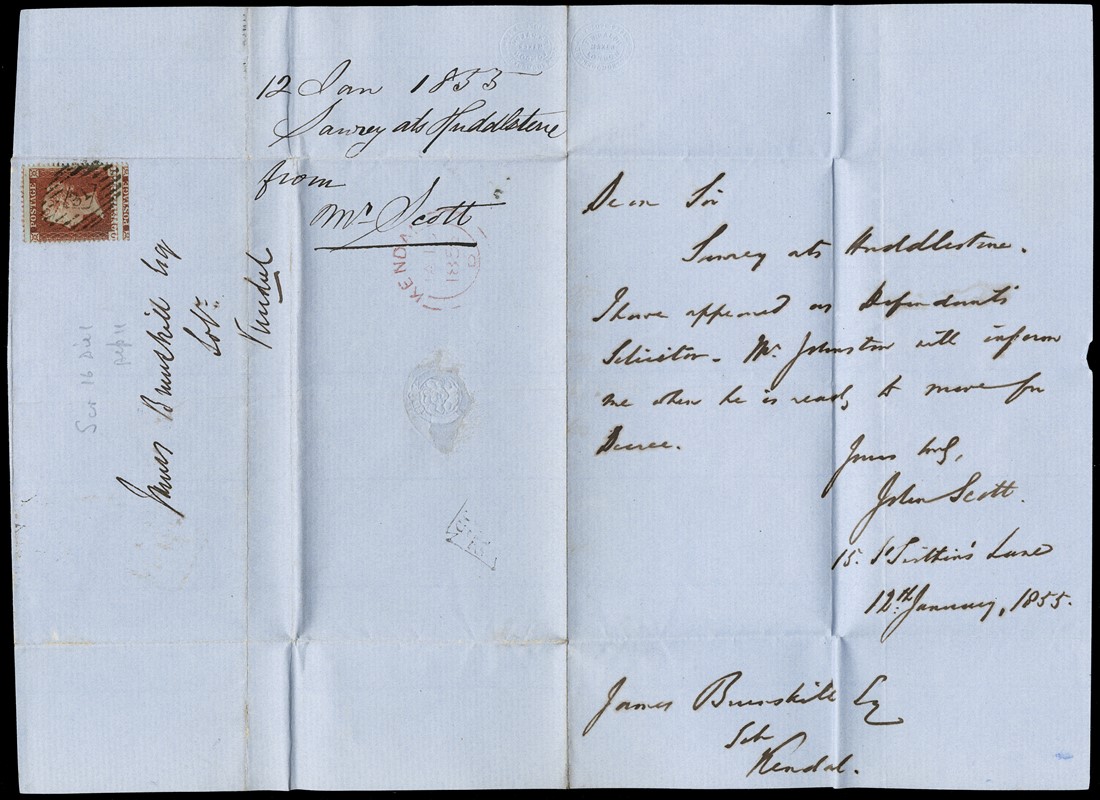 12 Jan 1855
Sawrey ats Huddlestone
from
Mr Scott
POSTAGE
James Brunskill Esq
Solr.
Kendal
Scr 16 Dial
KENDAL
185
Dear Sir
Sawrey ats Huddlestone.
I have appeared as Defendant's
Solicitor. Mr. Johnston will inform
me when he is ready to move for
Decree.
Yours truly,
John Scott.
15. St Swithin's Lane
12th. January, 1855.
James Brunskill Esq
Solr
Kendal.